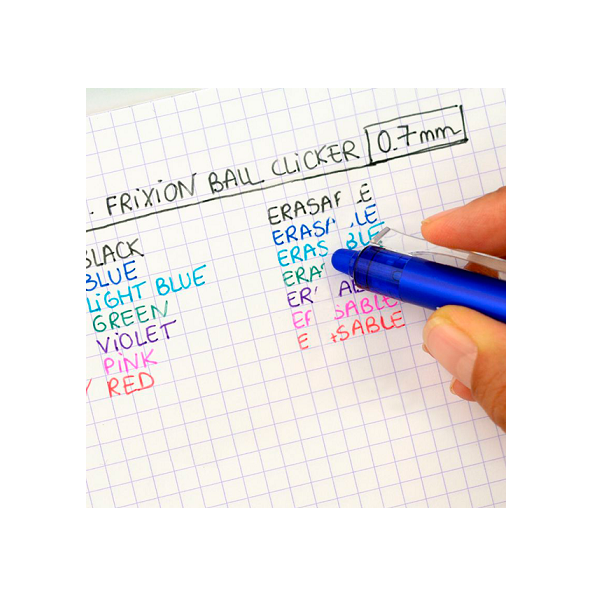 FRiXiON BALL CLiCKER 0.7mm
BLACK
BLUE
LiGHT BLUE
GREEN
ViOLET
PiNK
RED
ERASA LE
ERAS LE
ERAS BLE
ERA
ER AB
E SABLE
E SABLE